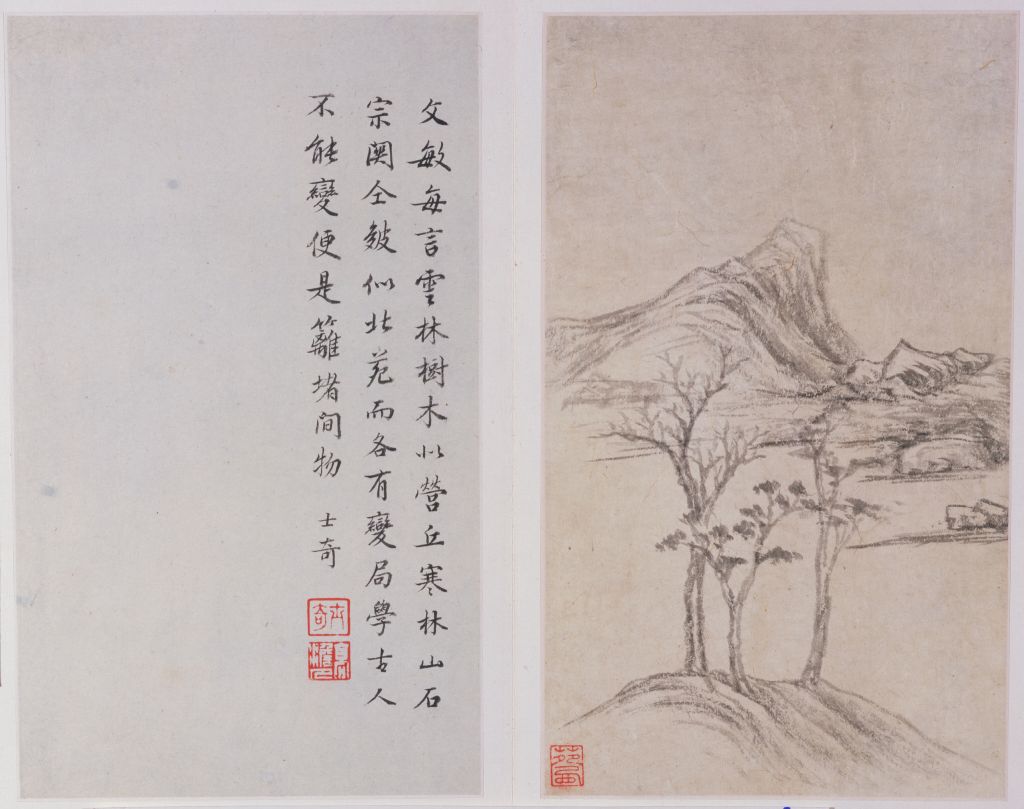 文敏每言雲林樹木似營丘寒林山石
宗関仝皴似北苑而各有變局學古人
不能變便是籬堵間物
士奇
士奇